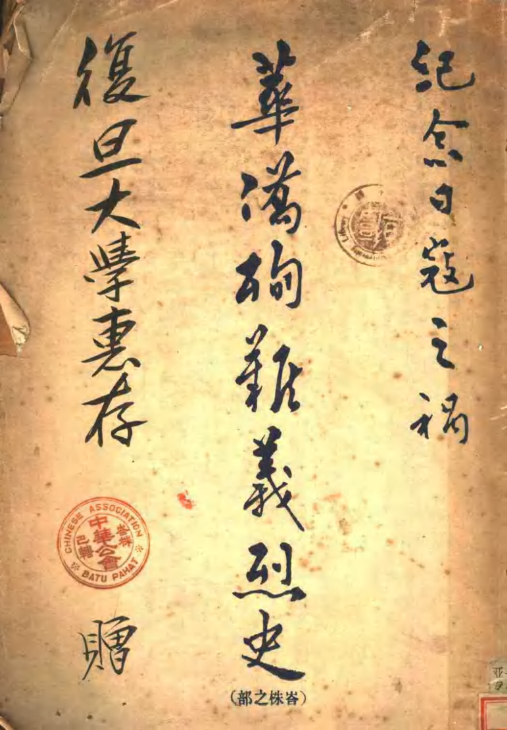 紀念日寇之禍
華僑殉難義烈史
(峇株之部)
復旦大學惠存
CHINESE ASSOCIATION
中華公會
峇株
巴轄
BATU PAHAT
贈
Library